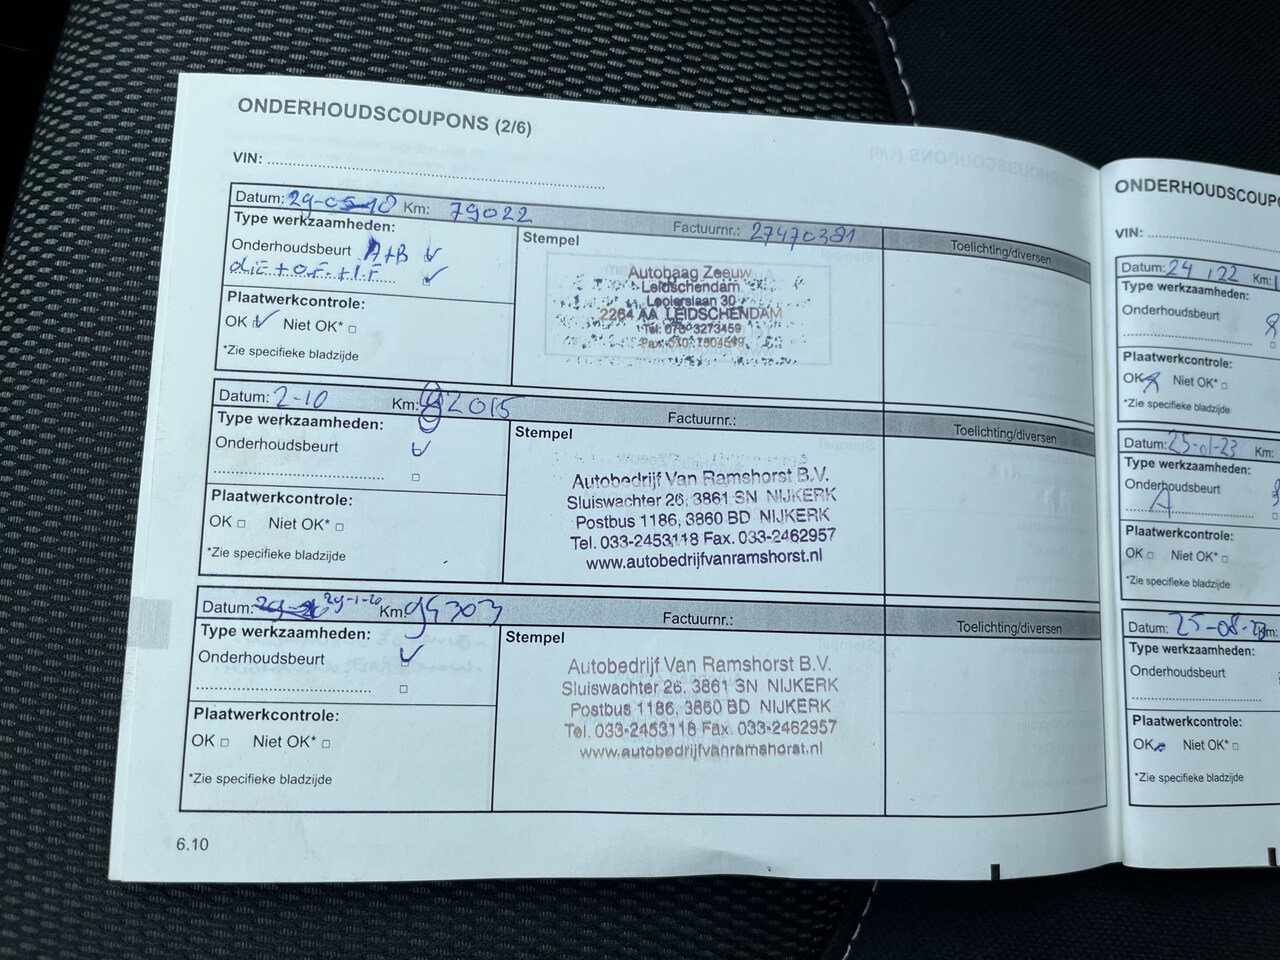 ONDERHOUDSCOUPONS (2/6)
VIN:
Datum: 29-05-18 Km: 79022 Factuurnr.: 27470381
Type werkzaamheden:
Onderhoudsbeurt A+B
O.F.
Stempel
Autohaag Zeeuw
Leidschendam
30
2264 AA LEIDSCHENDAM
Toelichting/diversen
Plaatwerkcontrole:
OK Niet OK*
*Zie specifieke bladzijde
Datum: 2-10 Km: 82015 Factuurnr.:
Type werkzaamheden:
Onderhoudsbeurt
Stempel
Autobedrijf Van Ramshorst B.V.
Sluiswachter 26, 3861 SN NIJKERK
Postbus 1186, 3860 BD NIJKERK
Tel. 033-2453118 Fax. 033-2462957
www.autobedrijfvanramshorst.nl
Toelichting/diversen
Plaatwerkcontrole:
OK Niet OK*
*Zie specifieke bladzijde
Datum: 29-1-20 Km: 94303 Factuurnr.:
Type werkzaamheden:
Onderhoudsbeurt
Stempel
Autobedrijf Van Ramshorst B.V.
Sluiswachter 26, 3861 SN NIJKERK
Postbus 1186, 3860 BD NIJKERK
Tel. 033-2453118 Fax. 033-2462957
www.autobedrijfvanramshorst.nl
Toelichting/diversen
Plaatwerkcontrole:
OK Niet OK*
*Zie specifieke bladzijde
6.10
VIN:
Datum: Km:
Type werkzaamheden:
Onderhoudsbeurt
Plaatwerkcontrole:
OK Niet OK*
*Zie specifieke bladzijde
Datum: 25-01-23 Km:
Type werkzaamheden:
Onderhoudsbeurt
A
Plaatwerkcontrole:
OK Niet OK*
*Zie specifieke bladzijde
Datum:
Type werkzaamheden:
Onderhoudsbeurt
Plaatwerkcontrole:
OK Niet OK*
*Zie specifieke bladzijde